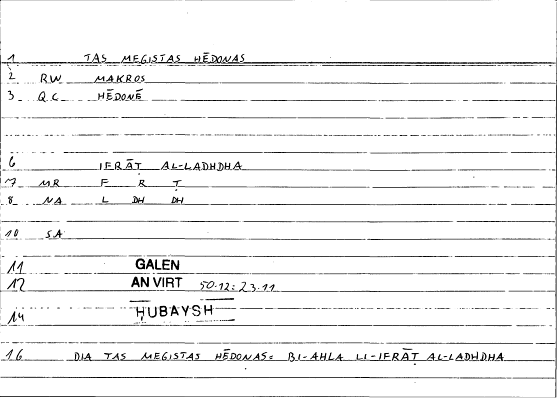 1 TAS MEGISTAS HĒDONAS
2 RW MAKROS
3 QC HĒDONĒ
6 IFRĀṬ AL-LADHDHA
7 MR F R Ṭ
8 NA L DH DH
10 SA
11 GALEN
12 AN VIRT 50.12:23.11
14 ḤUBAYSH
16 DIA TAS MEGISTAS HĒDONAS= BI-AHLA LI-IFRĀṬ AL-LADHDHA